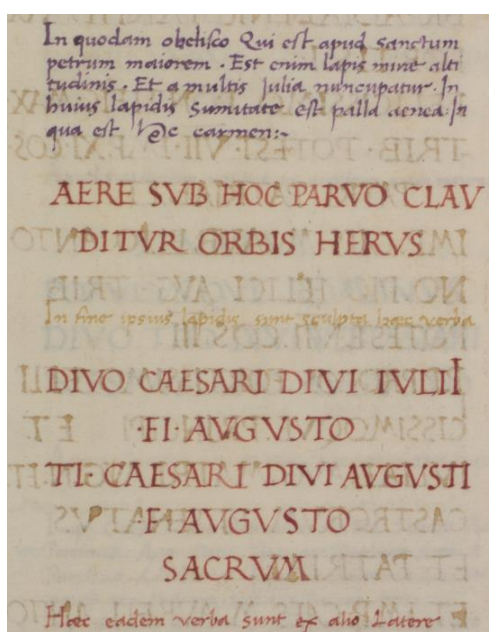 In quodam obelisco Qui est apud sanctum
petrum maiorem · Est enim lapis mirę alti
tudinis · Et a multis Iulia nuncupatur · In
huius lapidis sumitate est palla aenea · In
qua est hoc carmen:~
AERE SVB HOC PARVO CLAV
DITVR ORBIS HERVS
In fine ipsius lapidis sunt sculpta hęc verba
DIVO CAESARI DIVI IVLII
·FI·AVGVSTO
TI·CAESARI DIVI AVGVSTI
·F·AVGVSTO
SACRVM
Hæc eadem verba sunt ex alio Latere